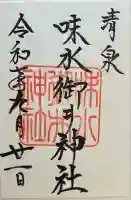 清泉
味水御井神社
令和元年九月廿一日
味水
御井
神社